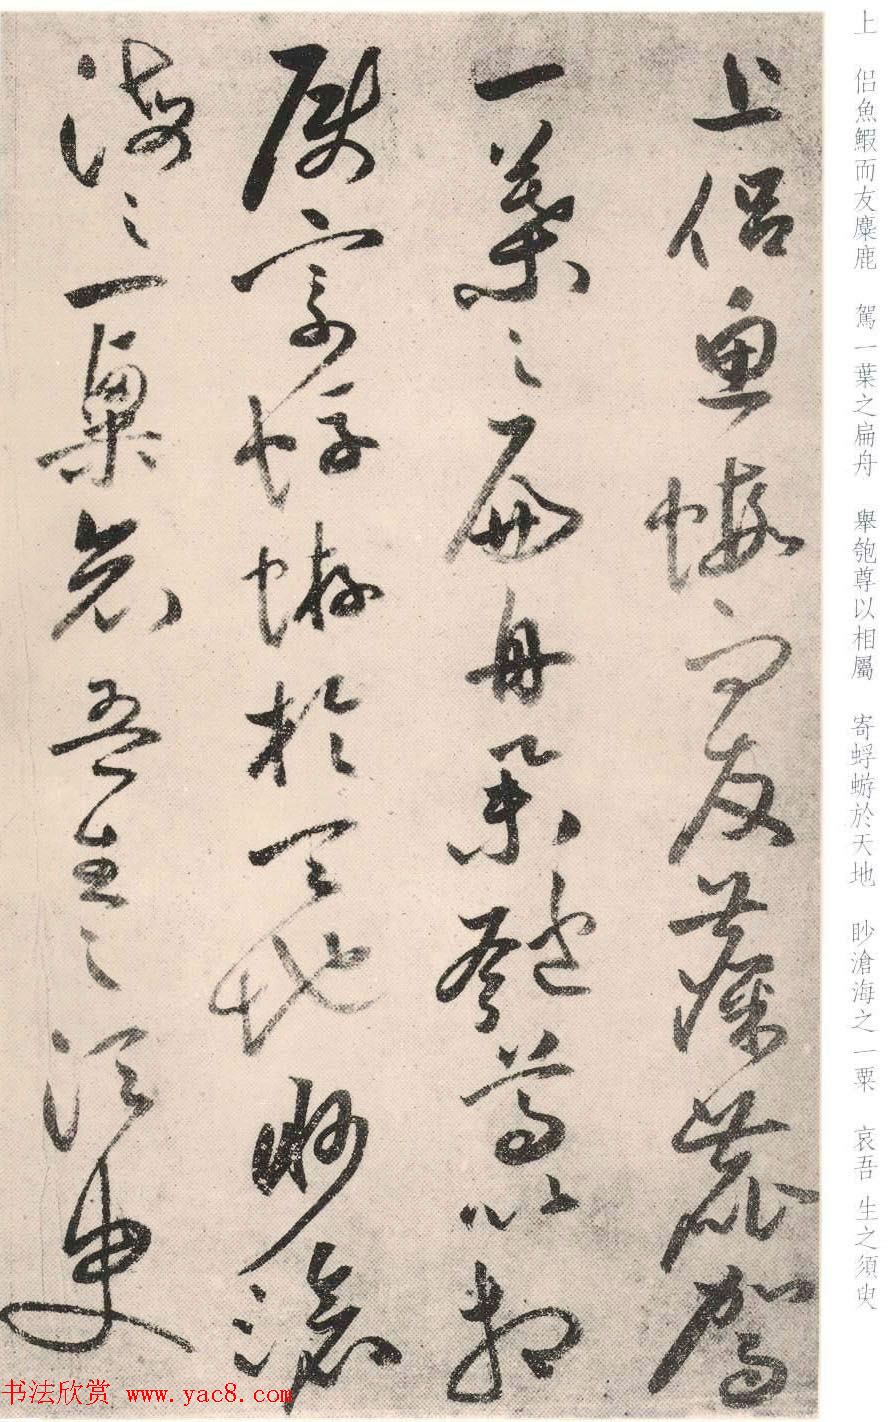 上 侶魚鰕而友麋鹿 駕一葉之扁舟 舉匏尊以相屬 寄蜉蝣於天地 眇滄海之一粟 哀吾生之須臾
上侶魚蝦而友麋鹿駕
一葉之扁舟舉匏尊以相
屬寄蜉蝣於天地眇滄
海之一粟哀吾生之須臾
书法欣赏 www.yac8.com